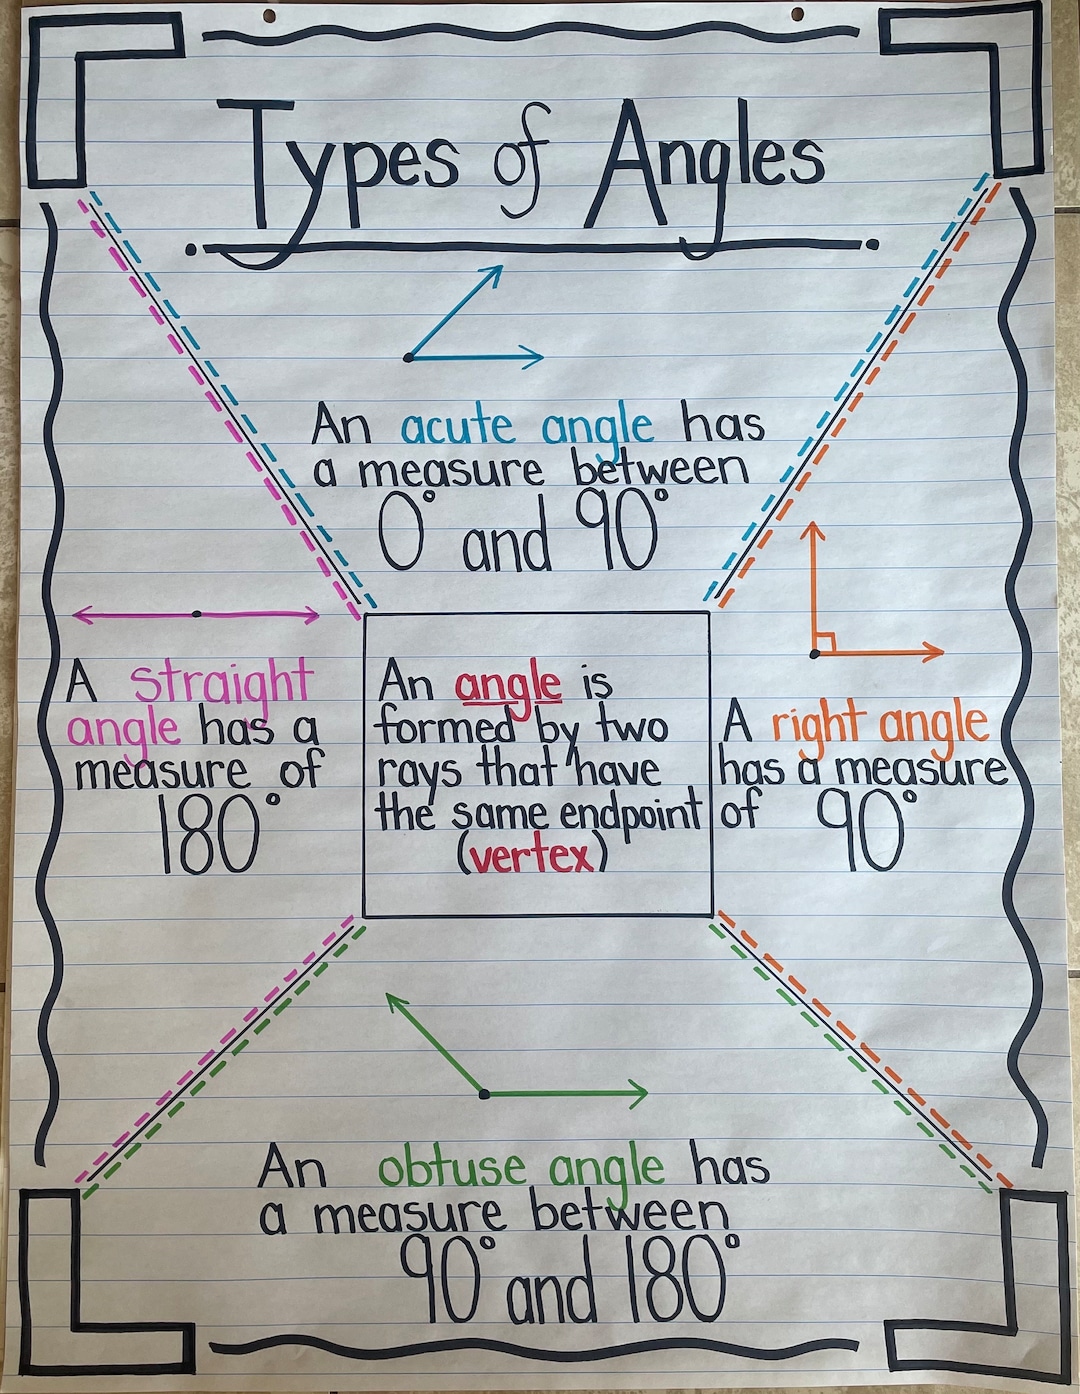 Types of Angles
An acute angle has
a measure between
0° and 90°
A straight
angle has a
measure of
180°
An angle is
formed by two
rays that have
the same endpoint
(vertex)
A right angle
has a measure
of 90°
An obtuse angle has
a measure between
90° and 180°